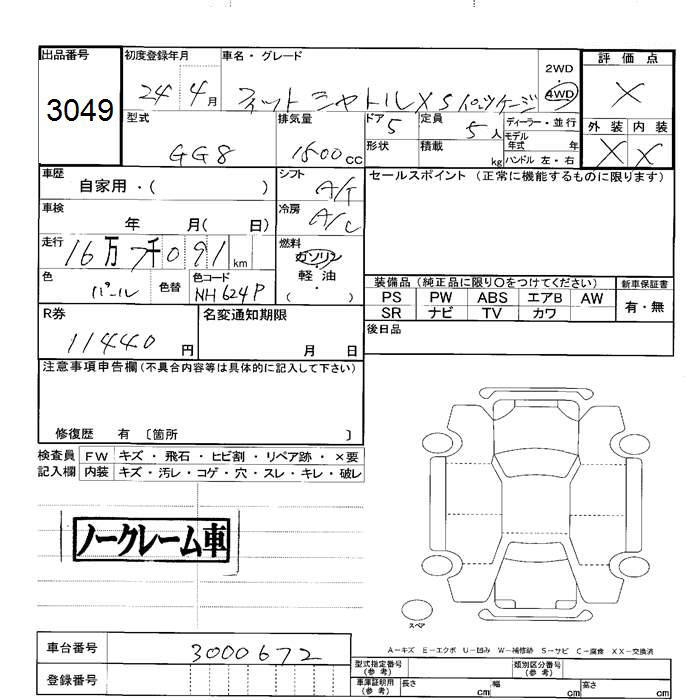 出品番号 初度登録年月 車名・グレード 2WD 評価点
3049 24 4月 フィットシャトルXSパッケージ 4WD X
型式 排気量 ドア 5 定員 5人 ディーラー・並行 外装 内装
GG8 1500cc 形状 積載 kg モデル年式 年 X X
ハンドル 左・右
車歴 シフト セールスポイント (正常に機能するものに限ります)
自家用・( ) A/T
車検 冷房
年 月( 日) A/C
走行 燃料
16万7千091km ガソリン
軽油
色 色替 色コード ( )
パール NH624P
装備品 (純正品に限り○をつけてください) 新車保証書
PS PW ABS エアB AW 有・無
SR ナビ TV カワ
R券 名変通知期限 後日品
11440円 月 日
注意事項申告欄(不具合内容等は具体的に記入して下さい)
修復歴 有 〔箇所 〕
検査員 FW キズ・飛石・ヒビ割・リペア跡・×要
記入欄 内装 キズ・汚レ・コゲ・穴・スレ・キレ・破レ
ノークレーム車
スペア
A-キズ E-エクボ U-凹み W-補修跡 S-サビ C-腐食 XX-交換済
車台番号 3000672
登録番号
型式指定番号(参考) 類別区分番号(参考)
車庫証明用(参考) 長さ cm 幅 cm 高さ cm